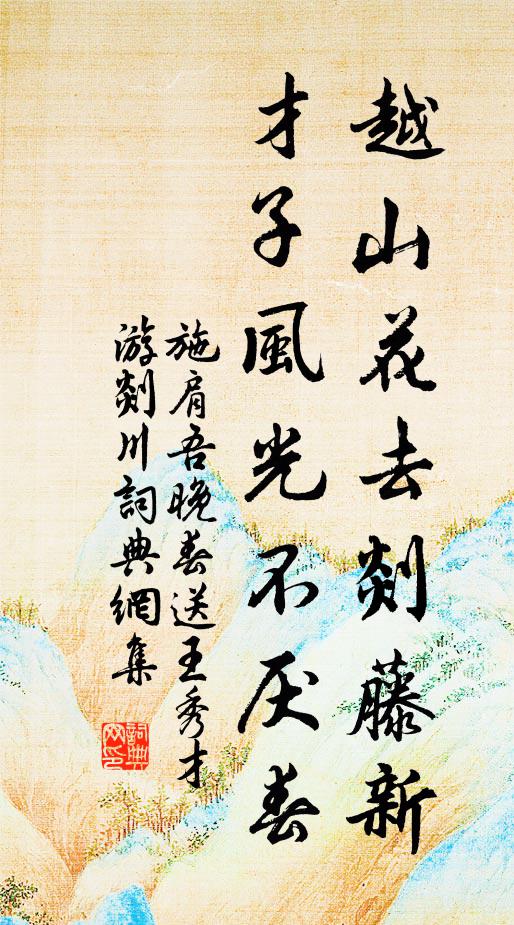 越山花去剡藤新
才子風光不厌春
施肩吾晚春送王秀才
游剡川詞典網集
詞典
网印